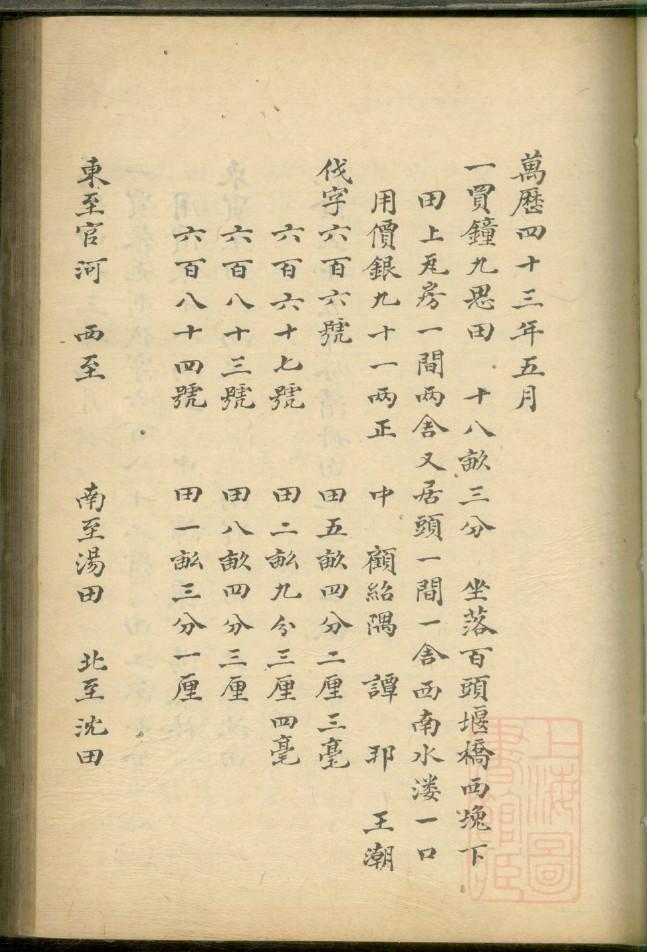 萬歷四十三年五月
一買鐘九思田 十八畝三分 坐落百頭堰橋西堍下
田上瓦房一間两舍又居頭一間一舍西南水漊一口
用價銀九十一两正 中 顧紹隅 譚 王潮
伐字六百六號 田五畝四分二厘三毫
六百六十七號 田二畝九分三厘四毫
六百八十三號 田八畝四分三厘
六百八十四號 田一畝三分一厘
東至官河 西至 南至湯田 北至沈田
上海圖
書館藏